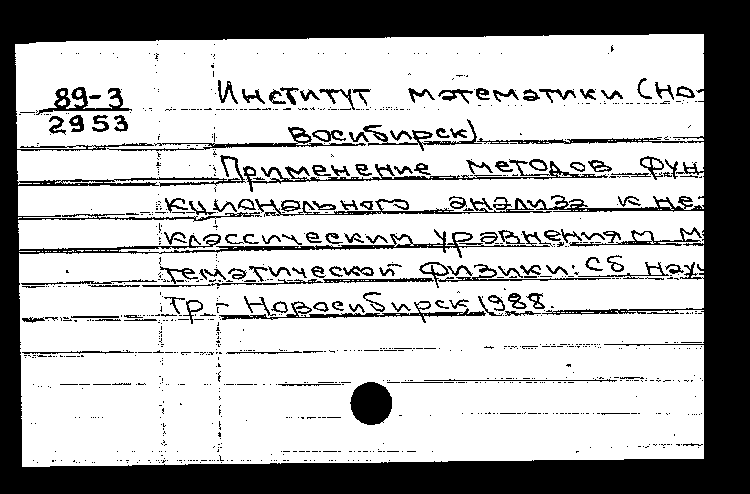 89-3
2953
Институт математики (Но-
восибирск).
Применение методов фун
кционального анализа к не
классическим уравнениям м
тематической физики: Сб. науч
тр - Новосибирск, 1988.